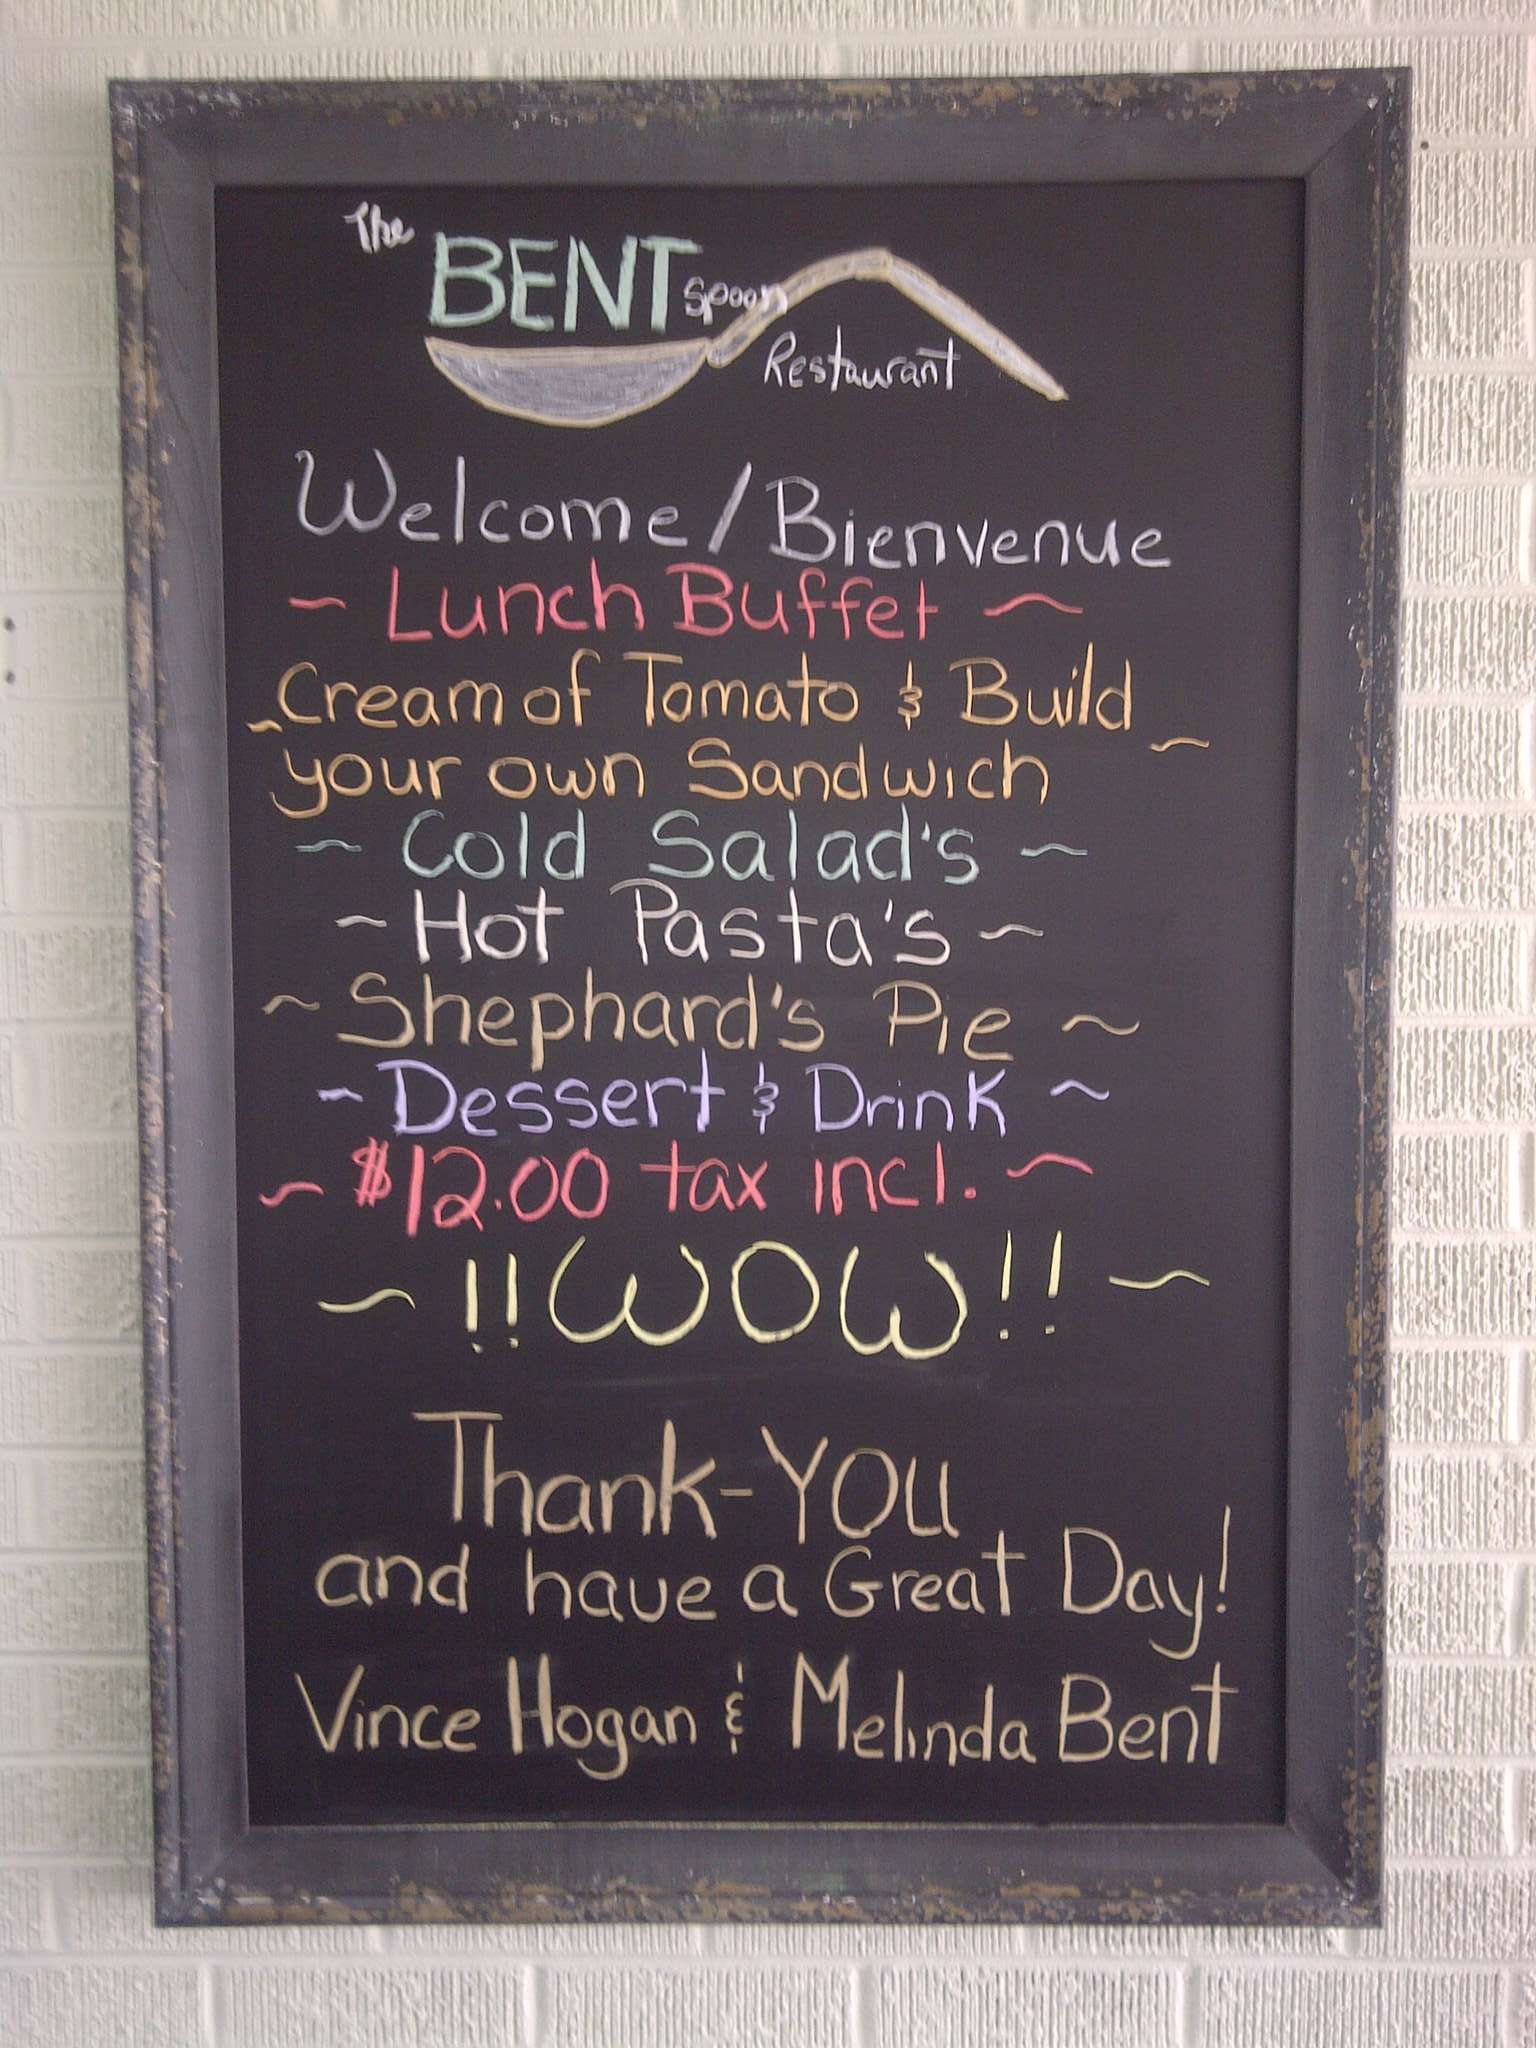 The BENT Spoon
Restaurant
Welcome/Bienvenue
~ Lunch Buffet ~
~ Cream of Tomato & Build
your own Sandwich ~
~ Cold Salad's ~
~ Hot Pasta's ~
~ Shephard's Pie ~
~ Dessert & Drink ~
~ $12.00 tax incl. ~
~ !!WOW!! ~
Thank-YOU
and have a Great Day!
Vince Hogan & Melinda Bent